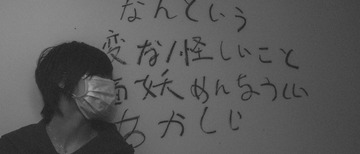 なんという
変な/怪しいこと
妖 めん
おかしい